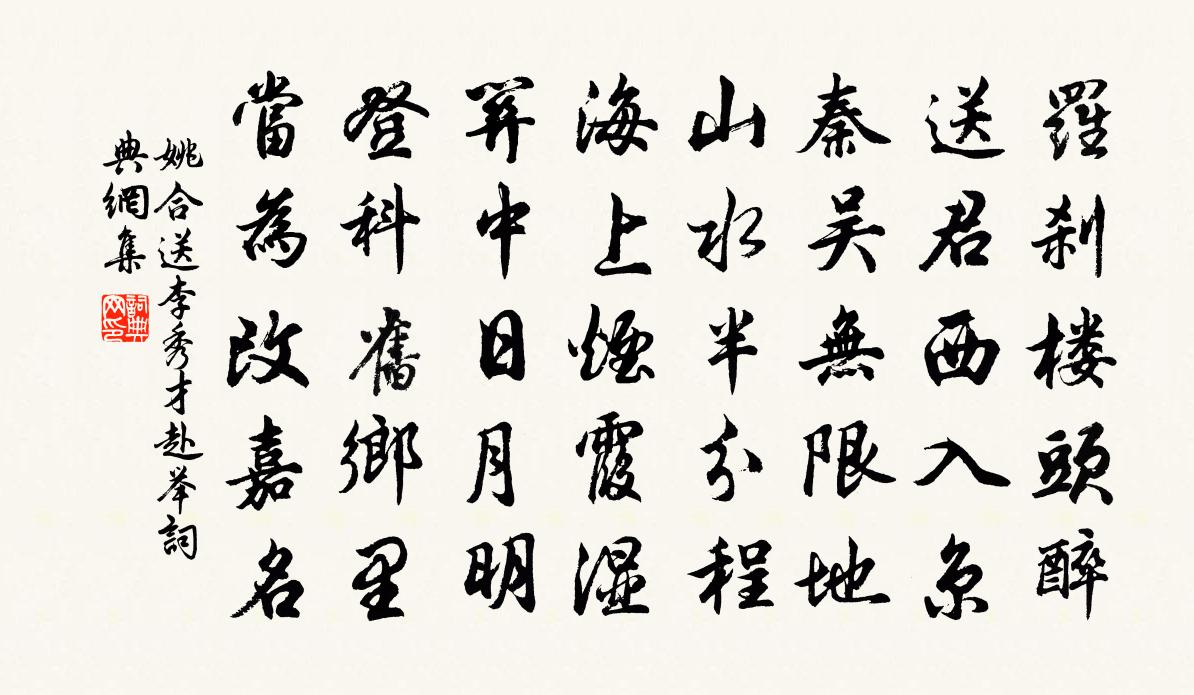 羅刹楼頭醉
送君西入京
秦吴無限地
山水半分程
海上煙霞濕
關中日月明
登科舊鄉里
當為改嘉名
姚合送李秀才赴举詞
典網集
詞典网印